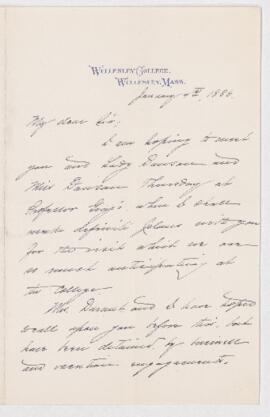 WELLESLEY COLLEGE,
WELLESLEY, MASS.
January 4th, 1886.
My dear Sir,
I am hoping to meet
you and Lady Dawson and
Miss Dawson Thursday at
Professor Gray's, when I shall
make definite plans with you
for the visit which we are
so much anticipating at
the College.
Mrs. Durant and I have hoped
to call upon you before this, but
have been detained by business
and vacation engagements.